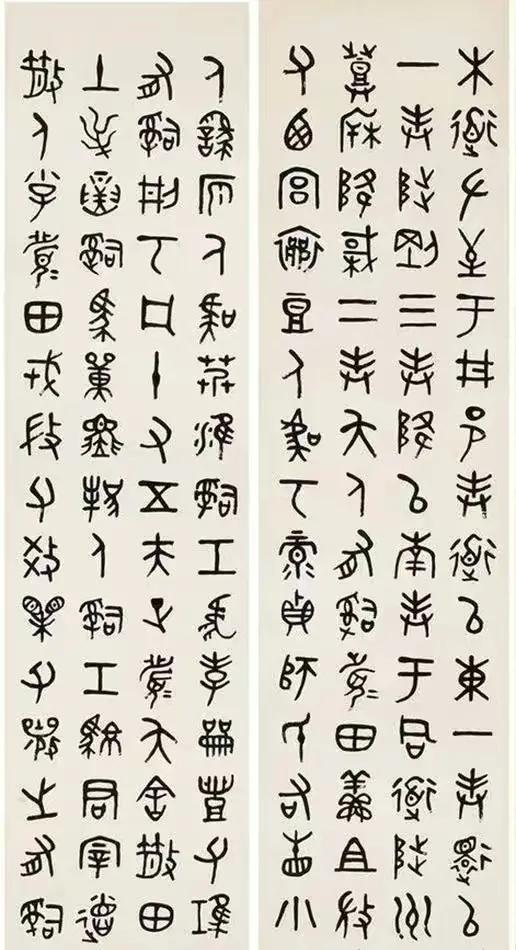 木道左至于井邑封道以東一封還以
一封陟剛三封降以南封于同道陟州
登柝降棫二封夨人有司眉田鮮且微
父西宮襄豆人虞丂彔貞師氏右眚小
人訟原人虞艿淮司工虎孝龠豐父唯
有司刑丂凡十又五夫正眉夨舍散田
土屰寅司馬單人司工駷君宰德
散人小子眉田戎微父效果父襄之有司